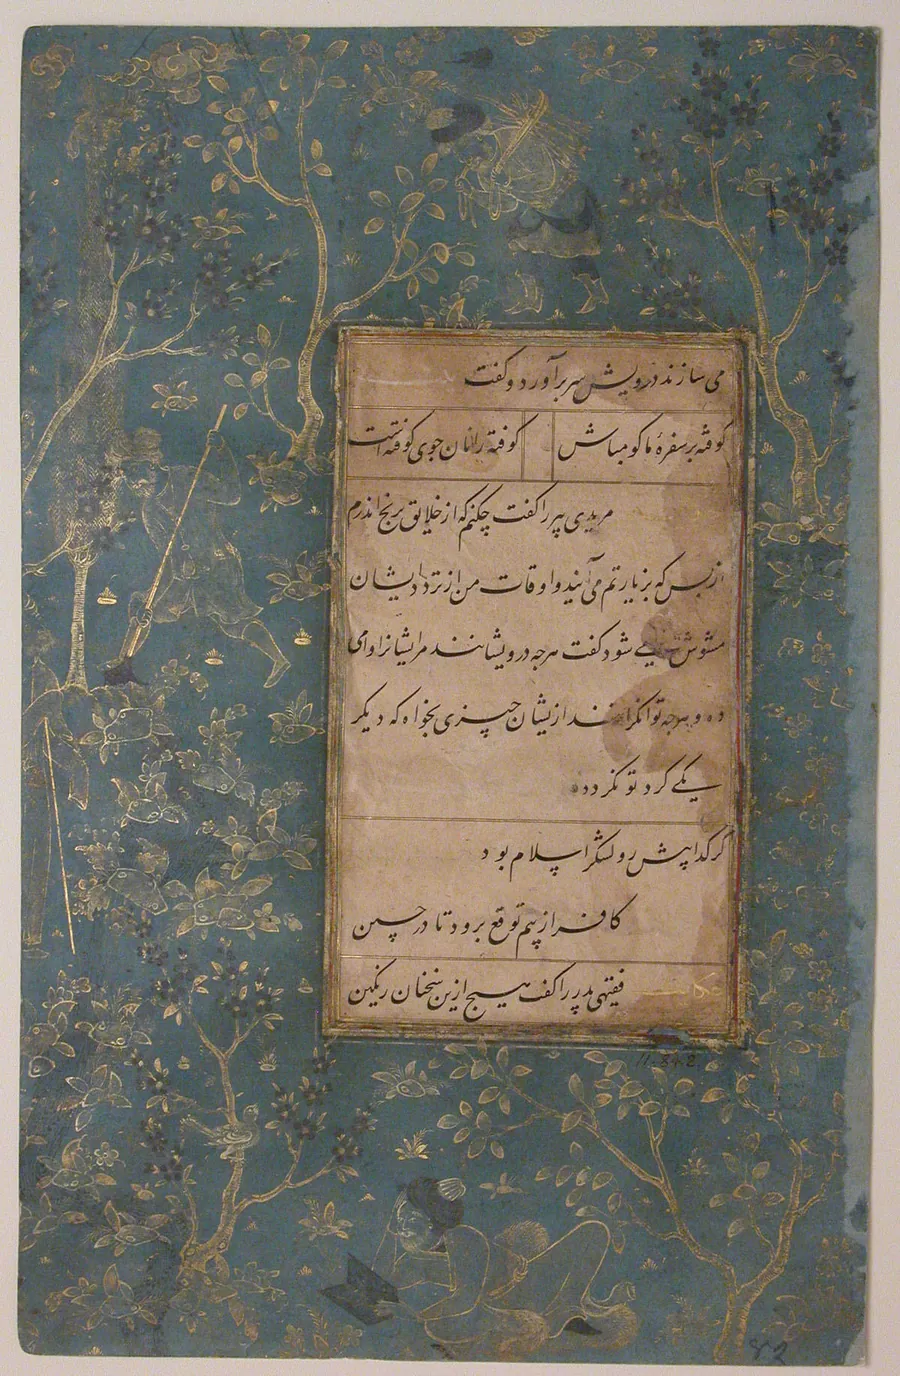 می سازند درویش سر برآورد و گفت
کوفته بر سفرهٔ ما گو مباش کوفته را نان جوی کوفته است
مریدی پیر را گفت چکنم که از خلایق برنج اندرم
از بس که بزیارتم می آیند و اوقات من از تردد ایشان
مشوش می شود گفت هرچه درویشانند مر ایشانرا وامی
ده و هرچه توانگرانند از یشان چیزی بخواه که دیگر
یکی گرد تو نگردد
گر گدا پیش رو لشکر اسلام بود
کافر از بیم توقع برود تا در چین
حکایت فقیهی پدر را گفت هیچ ازین سخنان رنگین
11.84.2
82